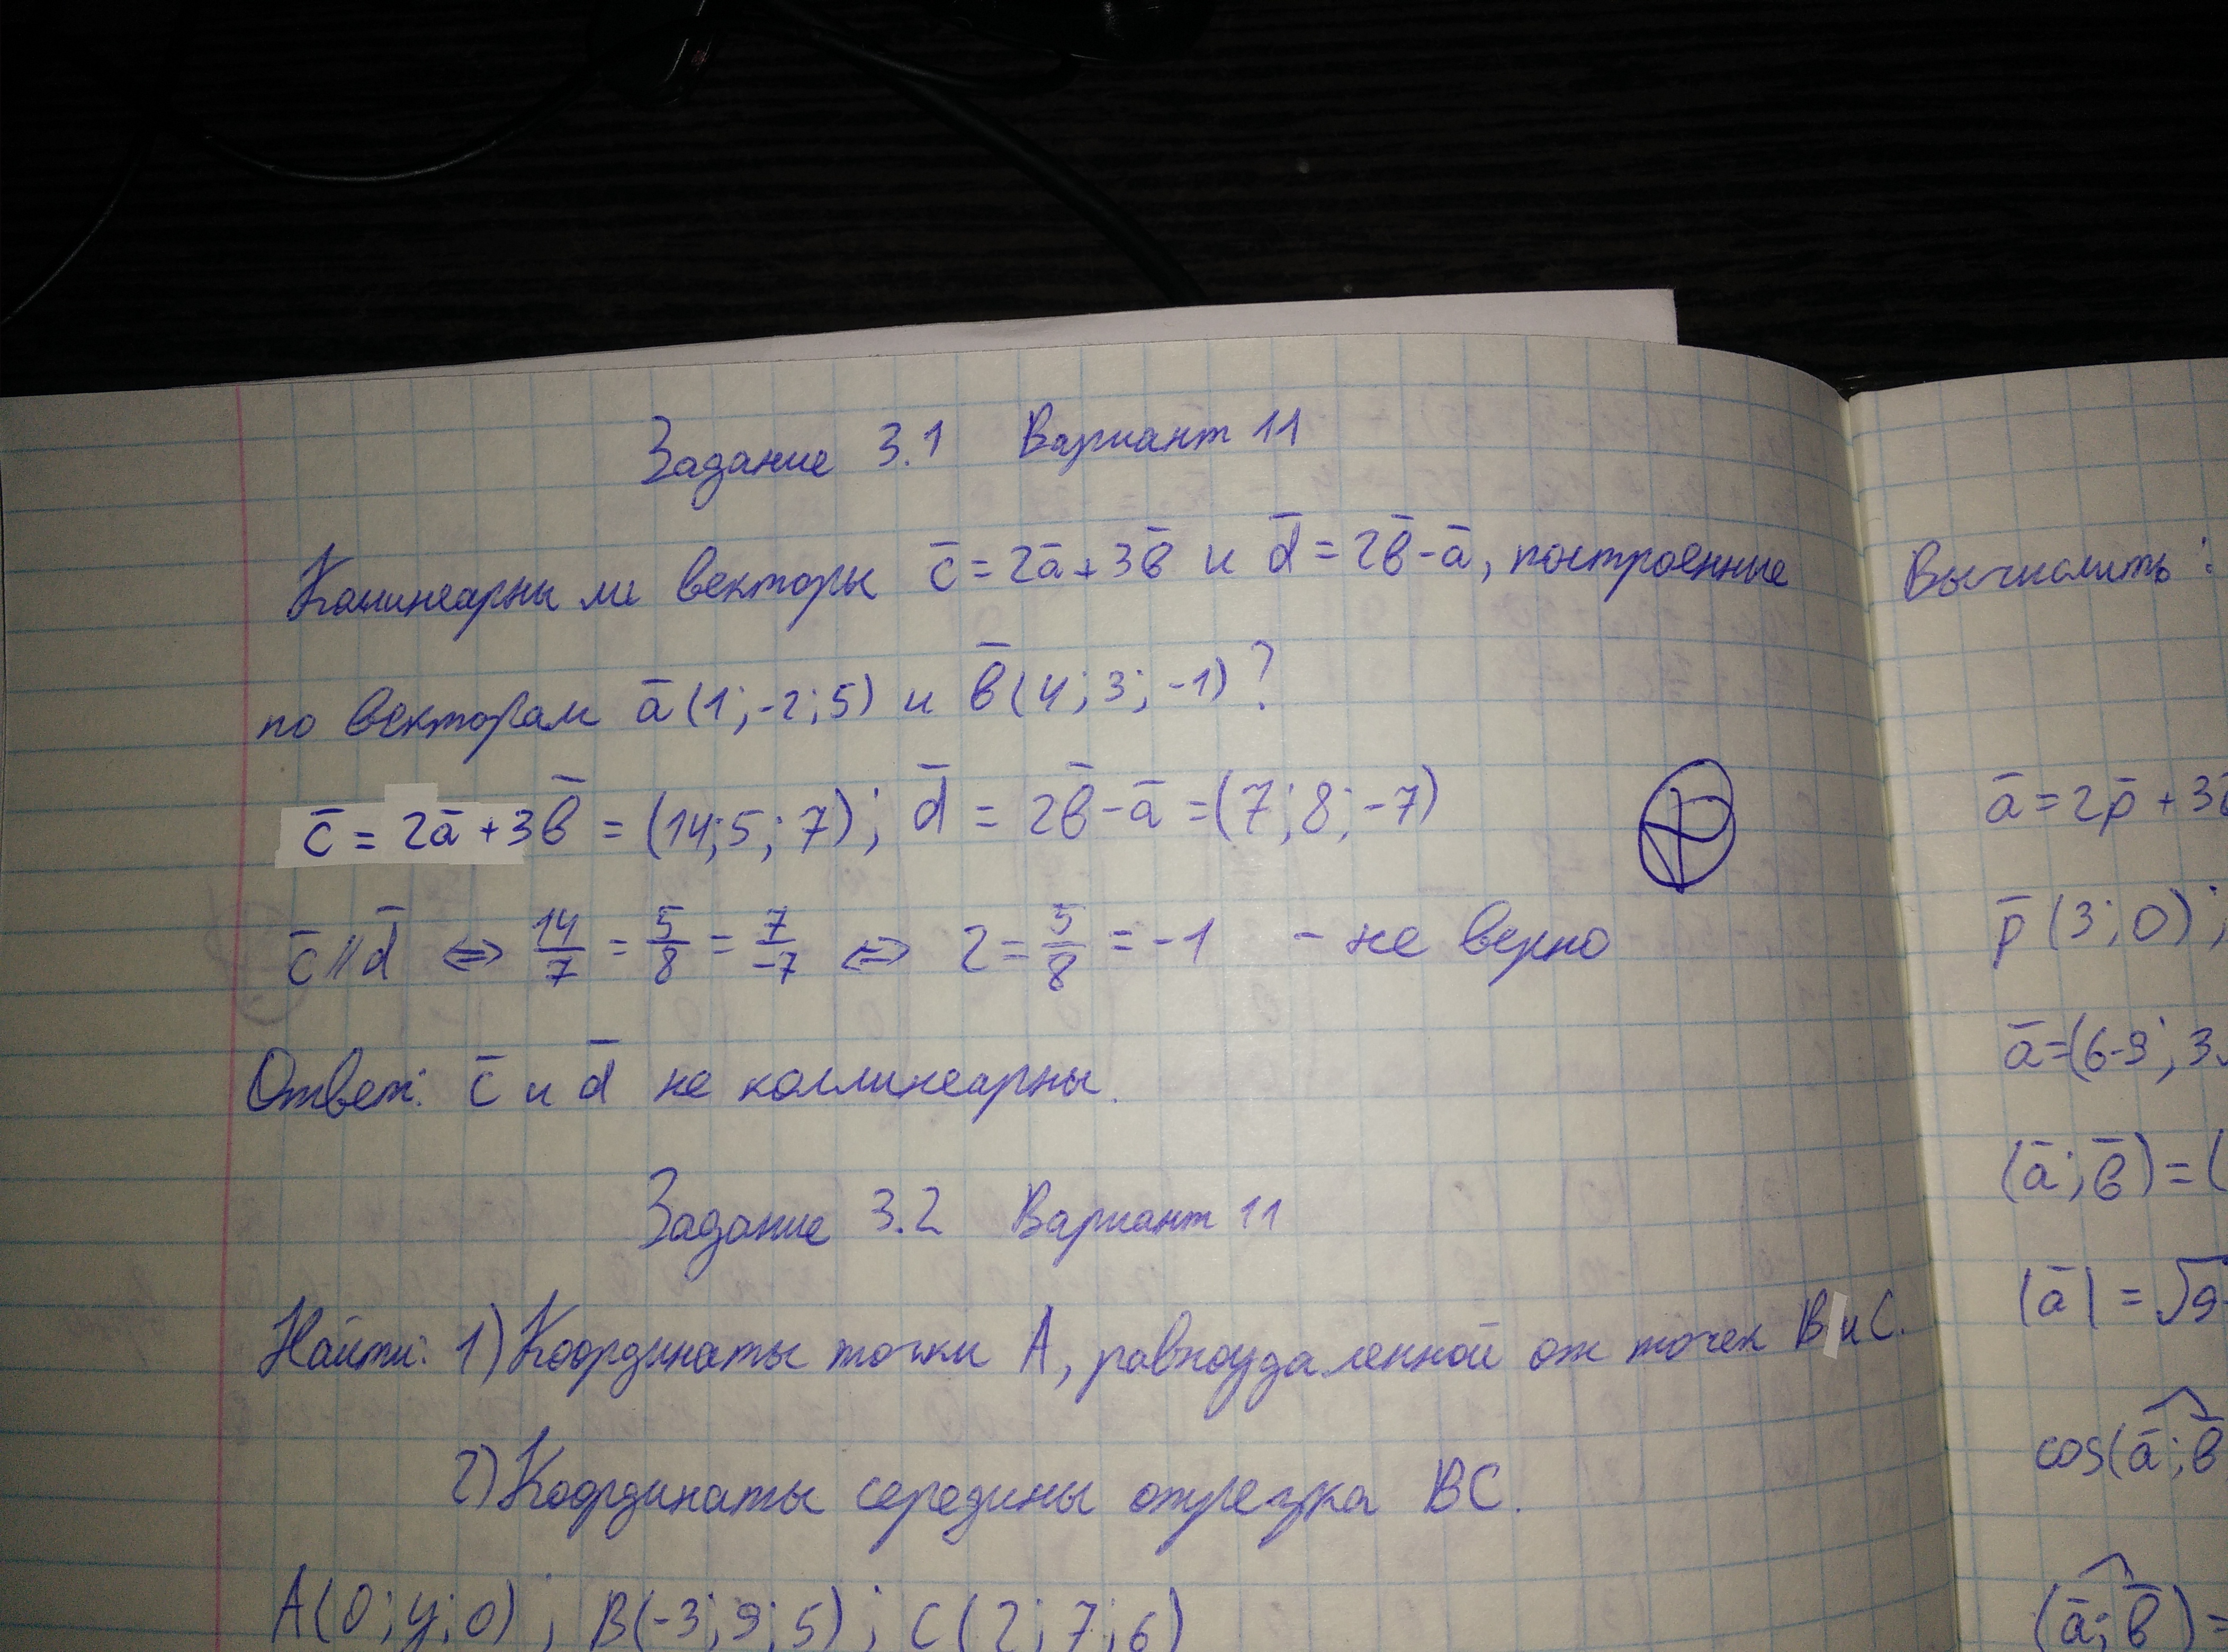 Задание 3.1 Вариант 11
Коллинеарны ли векторы c̄ = 2ā + 3b̄ и d̄ = 2b̄ - ā, построенные
по векторам ā (1; -2; 5) и b̄ (4; 3; -1)?
c̄ = 2ā + 3b̄ = (14; 5; 7); d̄ = 2b̄ - ā = (7; 8; -7)
c̄ || d̄ ⇔ 14/7 = 5/8 = 7/-7 ⇔ 2 = 5/8 = -1 - не верно
Ответ: c̄ и d̄ не коллинеарны.
Задание 3.2 Вариант 11
Найти: 1) Координаты точки A, равноудаленной от точек B и C.
2) Координаты середины отрезка BC.
A(0; y; 0); B(-3; 9; 5); C(2; 7; 6)
Вычислить:
ā = 2p̄ + 3
p̄ (3; 0);
ā = (6-9; 3
(ā; b̄) = (
|ā| = √9
cos(ā; b̄
(ā; b̄) =